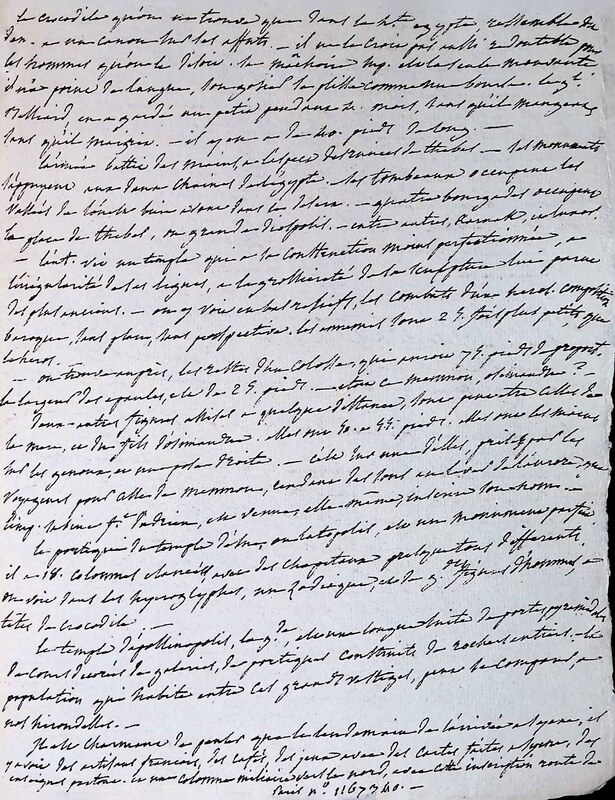 le crocodile qu'on ne trouve que dans la hte egypte, ressemble de
loin à un canon sur son affut. - il ne le croit pas aussi redoutable pour
les hommes qu'on le dit. la machoire sup. est la seule mouvante
il n'a point de langue, son gosier la plisse comme une bourse. le gl.
Belliard, en a gardé un petit pendant 4 mois, sans qu'il mangeat,
sans qu'il maigrit. - il y en a de 40. pieds de long. -
l'armée battit des mains, à l'aspect des ruines de thebes - les monuments
s'appuyent aux deux chaines de l'égypte. les tombeaux occupent les
vallées de l'ouest bien avant dans le desert. - quatre bourgades occupent
la place de thebes, ou grande diospolis. - entre autres, Karnak, et luxor.
- l'aut. vit un temple qui à sa construction moins perfectionnée, à
l'irrégularité de ses lignes, à la grossiereté de la sculpture lui parut
des plus anciens. - on y voit en bas relief, les combats d'un heros. composition
baroque, sans plan, sans perspective. les ennemis sont 25. fois plus petits, que
le heros.
- on trouve auprès, les restes d'un Colosse, qui avoit 75. pieds de proport.
la largeur des epaules, est de 25. pieds. - etoit ce memnon, osimandue? -
Deux autres figures assises à quelque distance, sont peut etre celles de
la mere, et du fils d'osimandue. elles ont 50. à 55. pieds. elles ont les mains
sur les genoux, et une pose droite. - c'est sur une d'elles, prise par les
voyageurs pour celle de memnon, rendant des sons au lever de l'aurore, que
l'imp. sabine f.e d'adrien, est venue, elle-même, inscrire son nom. -
le portique du temple d'esné, ou latopolis, est un monument parfait
il a 18. colonnes elancées avec des chapiteaux presque tous differents.
on voit dans les hyeroglyphes, un zodiaque, et de gdes figures d'hommes, à
têtes de crocodile. -
le temple d'apollinopolis, la gde. est une longue suite de portes pyramidales
de cours decorées de galeries, de portiques construits de rochers entiers. - la
population qui habite entre ces grands vestiges, peut se comparer, à
nos hirondelles. -
Il est charmant de penser que le lendemain de l'arrivée à syene, il
y avoit des artisans francais, des cafés, des jeux avec des cartes faites à syene, des
enseignes partout. et une colonne miliaire vers le nord, avec cette inscription route de
Paris n°. 1167340. -